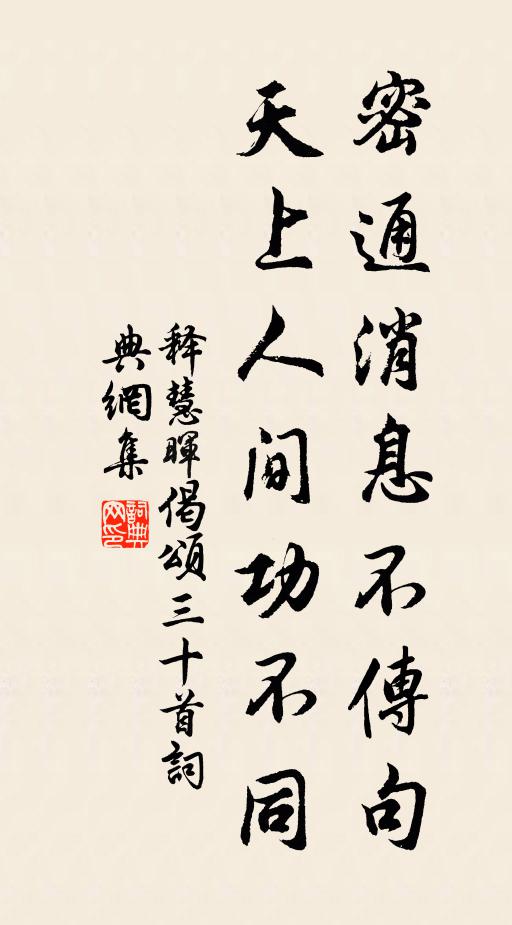 密通消息不傳句
天上人间功不同
释慧暉偈頌三十首詞
典網集
詞典
网印